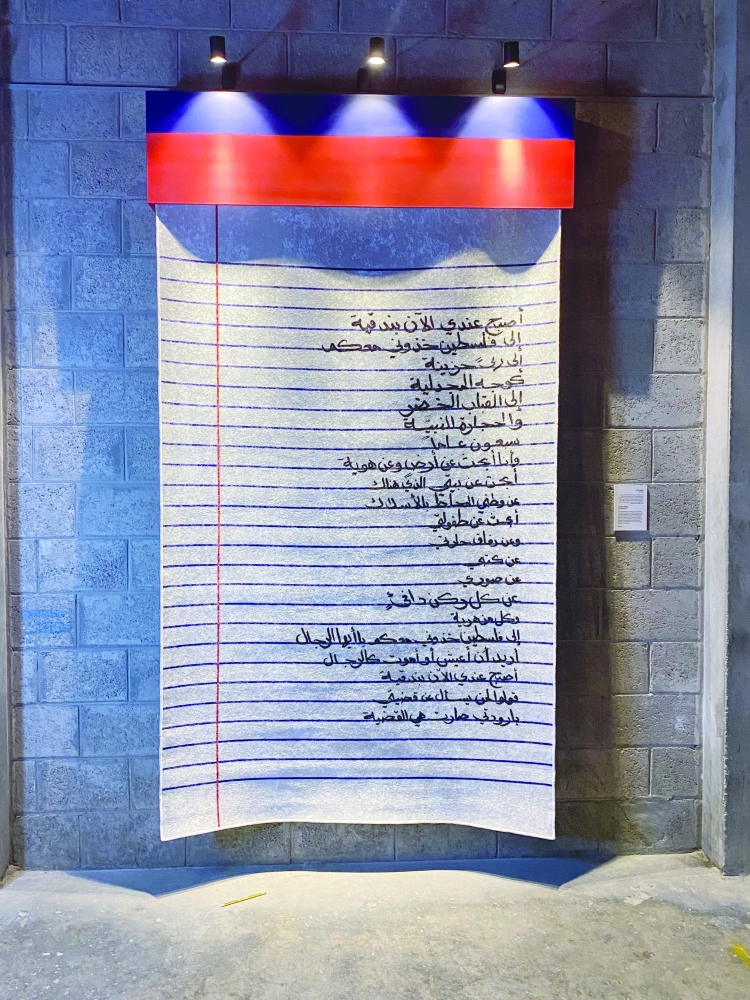 أصبح عندي الآن بندقية
إلى فلسطين خذوني معكم
إلى ربىً حزينة
كوجه المجدلية
إلى القباب الخضر
والحجارة النبيّة
سبعون عاماً
وأنا أبحث عن أرض وعن هوية
أبحث عن بيتي الذي هناك
عن وطني المحاط بالأسلاك
أبحث عن طفولتي
وعن رفاق حارتي
عن كتبي
عن صوري
عن كل ركن دافئٍ
وكل مزهرية
إلى فلسطين خذوني معكم يا أيها الرجال
أريد أن أعيش أو أموت كالرجال
أصبح عندي الآن بندقية
قولوا لمن يسأل عن قضيتي
بارودتي صارت هي القضية